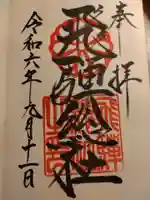 奉拝
飛騨総社
令和六年九月十一日